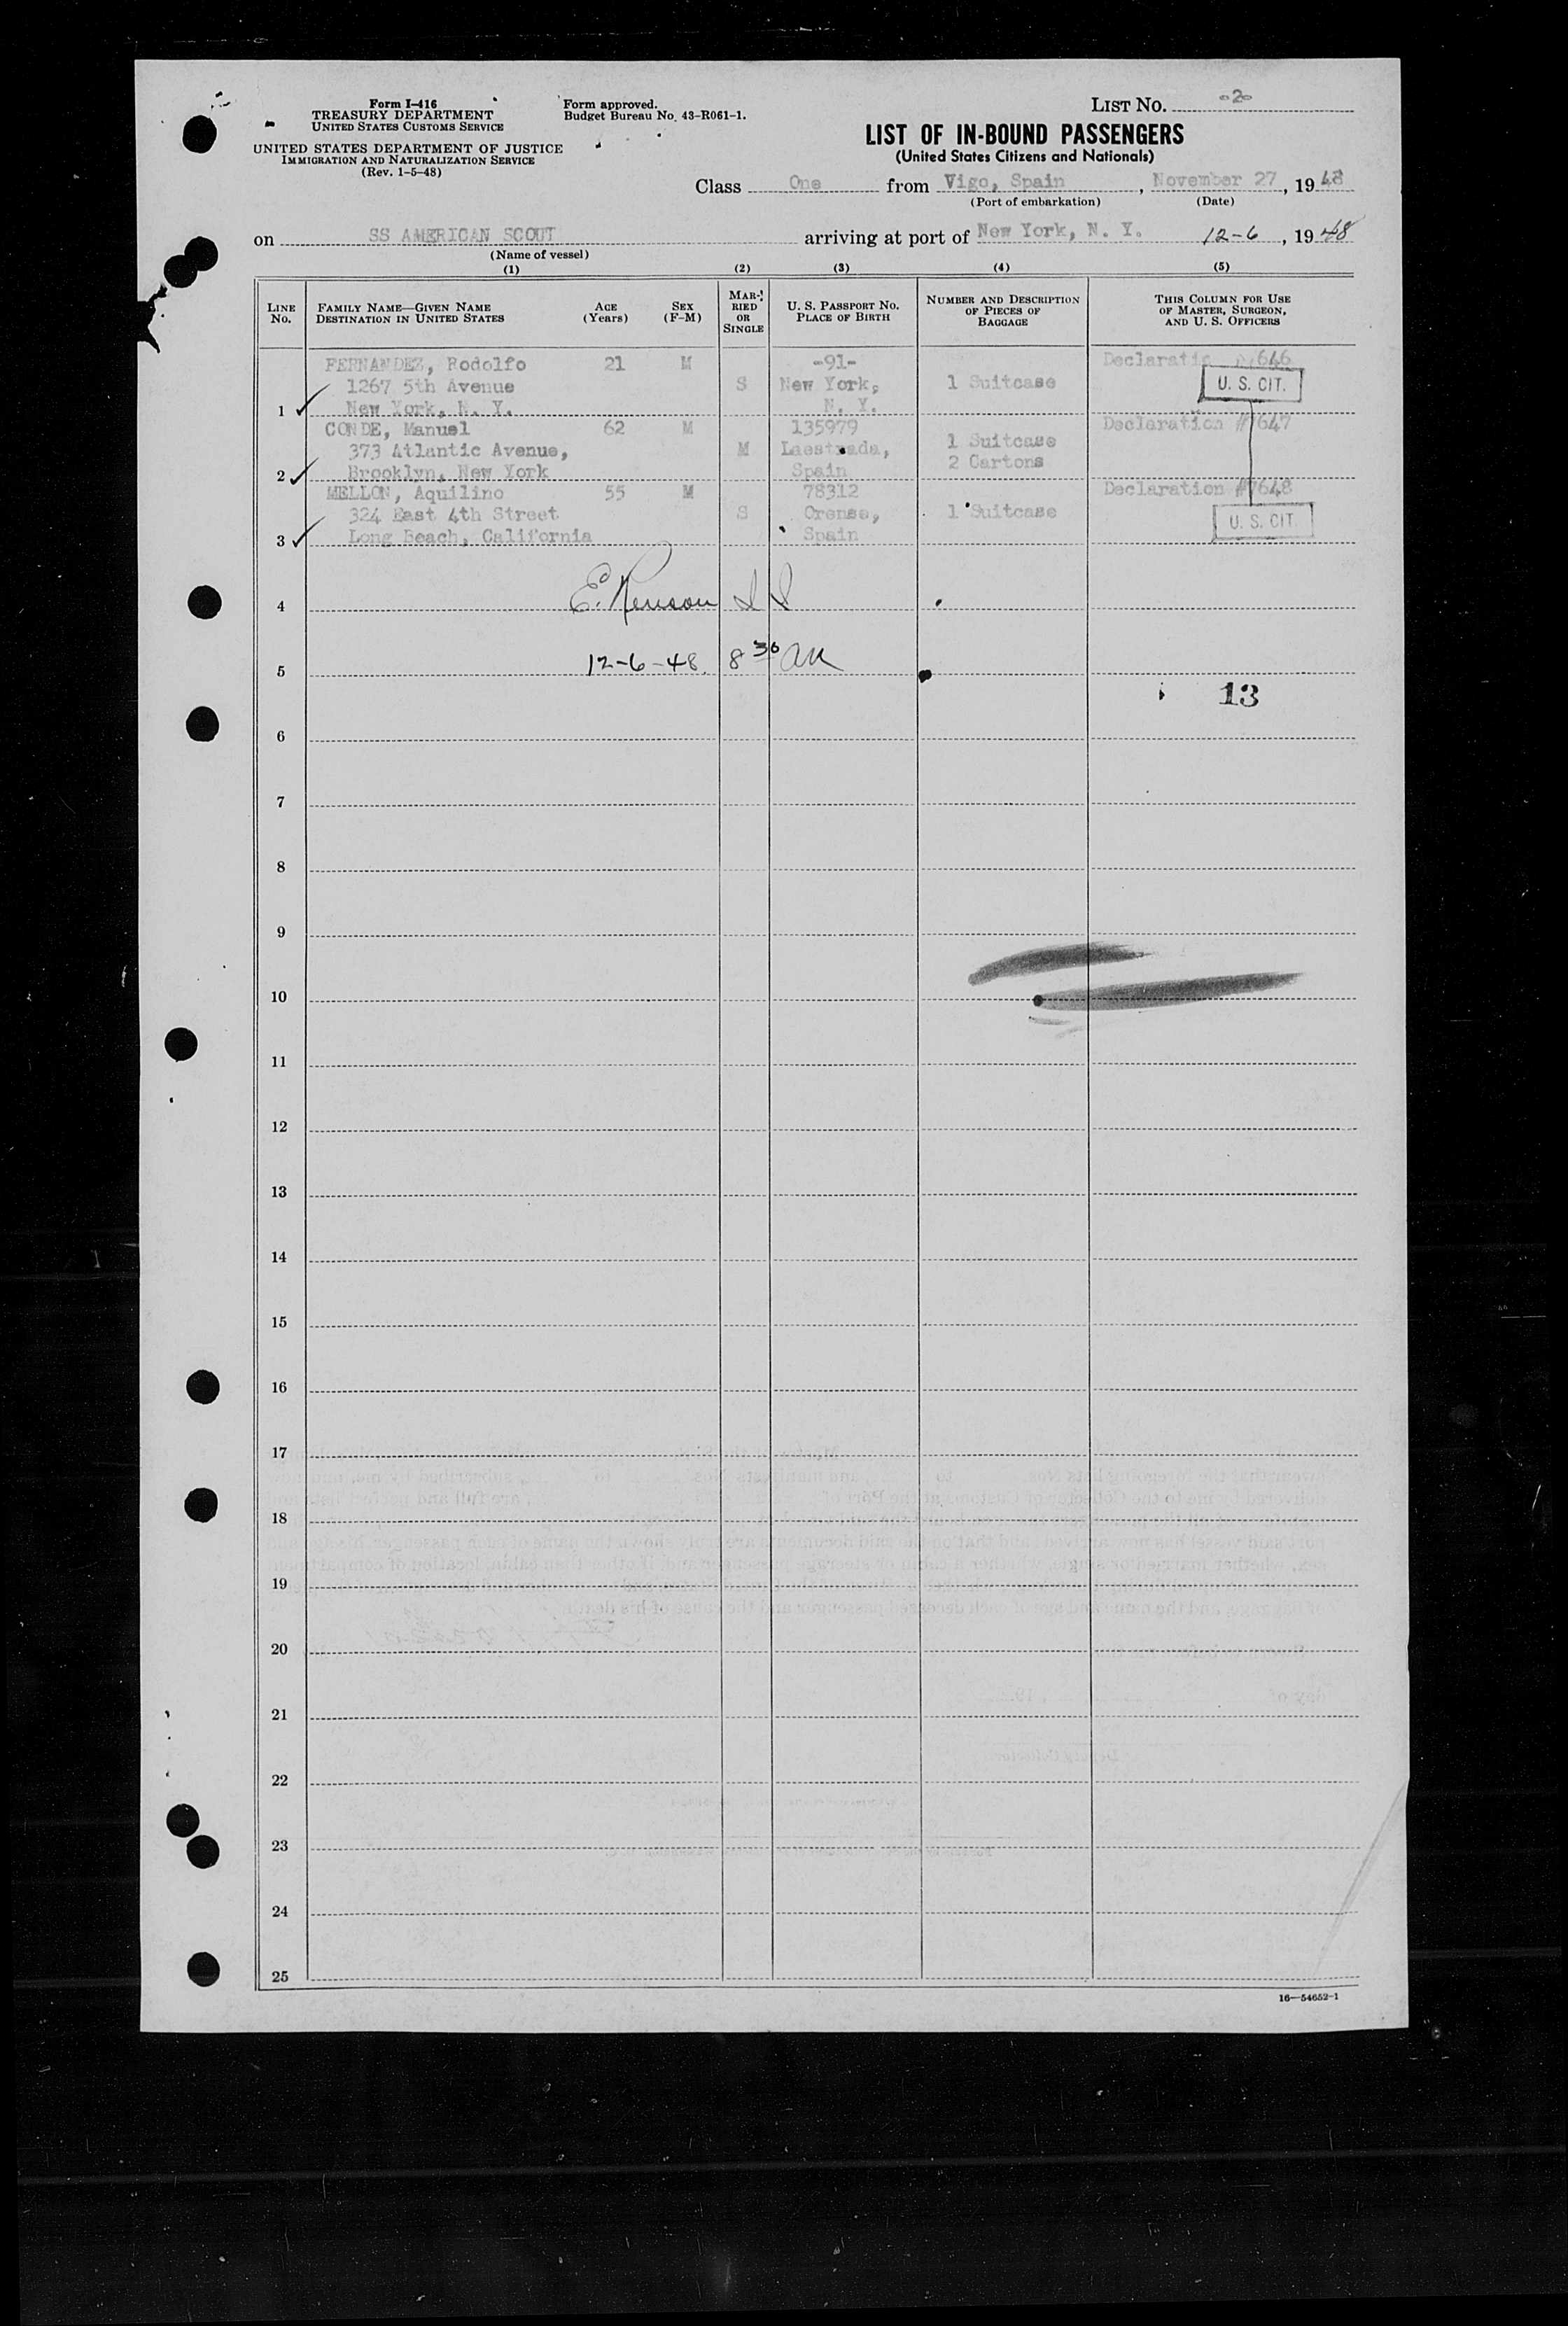 Form I-416
TREASURY DEPARTMENT
UNITED STATES CUSTOMS SERVICE
UNITED STATES DEPARTMENT OF JUSTICE
IMMIGRATION AND NATURALIZATION SERVICE
(Rev. 1-5-48)
Form approved.
Budget Bureau No. 43-R061-1.
LIST NO. -2-
LIST OF IN-BOUND PASSENGERS
(United States Citizens and Nationals)
Class One from Vigo, Spain, November 27, 1948
(Port of embarkation) (Date)
on SS AMERICAN SCOUT arriving at port of New York, N. Y. 12-6, 1948
(Name of vessel)
(1) (2) (3) (4) (5)
LINE NO.
FAMILY NAME—GIVEN NAME
DESTINATION IN UNITED STATES
AGE (Years)
SEX (F-M)
MARRIED OR SINGLE
U. S. PASSPORT NO.
PLACE OF BIRTH
NUMBER AND DESCRIPTION OF PIECES OF BAGGAGE
THIS COLUMN FOR USE OF MASTER, SURGEON, AND U. S. OFFICERS
FERNANDEZ, Rodolfo 21 M -91- 646
1267 5th Avenue S New York, 1 Suitcase U. S. CIT.
1 New York, N. Y. N. Y.
CONDE, Manuel 62 M 135979 Declaration #7647
373 Atlantic Avenue, M Laestrada, 1 Suitcase
2 Brooklyn, New York Spain 2 Cartons
MELLON, Aquilino 55 M 78312 Declaration #7648
324 East 4th Street S Orense, 1 Suitcase U. S. CIT.
3 Long Beach, California Spain
4 E.
5 12-6-48. 8 30 AM
13
6
7
8
9
10
11
12
13
14
15
16
17
18
19
20
21
22
23
24
25
16—54652-1